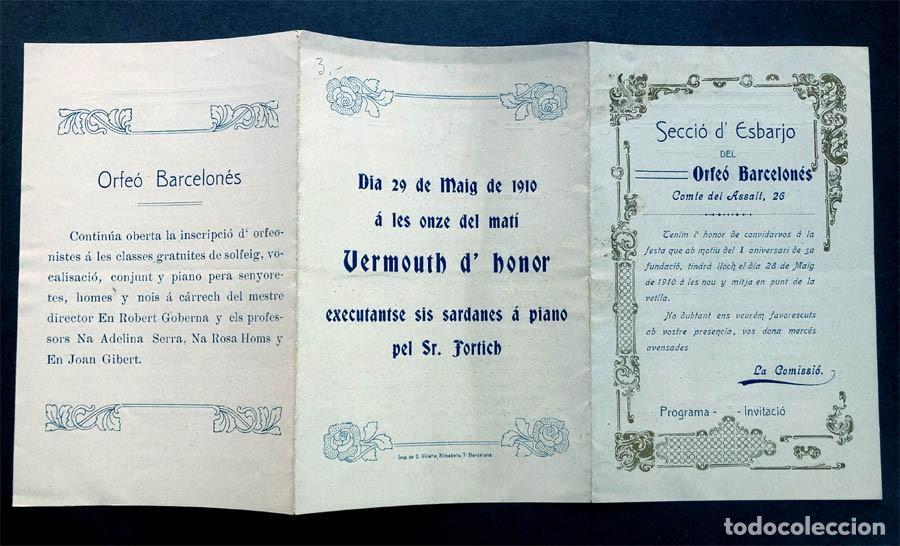 Orfeó Barcelonés
Continúa oberta la inscripció d' orfeo-
nistes á les classes gratnites de solfeig, vo-
calisació, conjunt y piano pera senyore-
tes, homes y nois á cárrech del mestre
director En Robert Goberna y els profes-
sors Na Adelina Serra, Na Rosa Homs y
En Joan Gibert.
3.-
Dia 29 de Maig de 1910
á les onze del matí
Vermouth d' honor
executantse sis sardanes á piano
pel Sr. Fortich
Imp. de S. Vilalta, Elisabets, 7 - Barcelona
Secció d' Esbarjo
DEL
Orfeó Barcelonés
Comte del Assalt, 26
Tenim l' honor de convidarvos á la
festa que ab motiu del I aniversari de sa
fundació, tindrá lloch el dia 28 de Maig
de 1910 á les nou y mitja en punt de la
vetlla.
No dubtant ens veurém favorescuts
ab vostre presencia, vos dona mercés
avensades
La Comissió.
Programa - - Invitació
todocoleccion